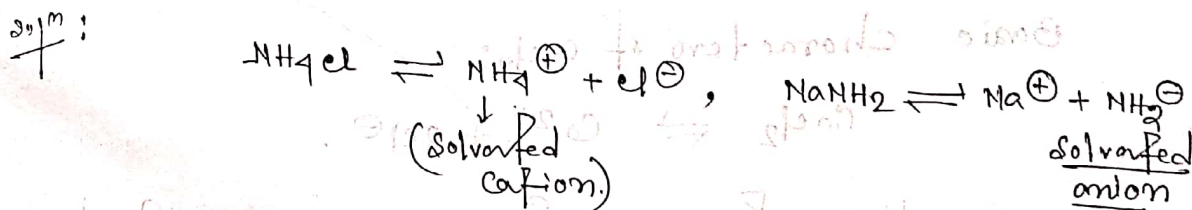 NH4Cl ⇌ NH4⊕ + Cl⊖, NaNH2 ⇌ Na⊕ + NH2⊖
↓
(Solvated cation.)
Solvated anion